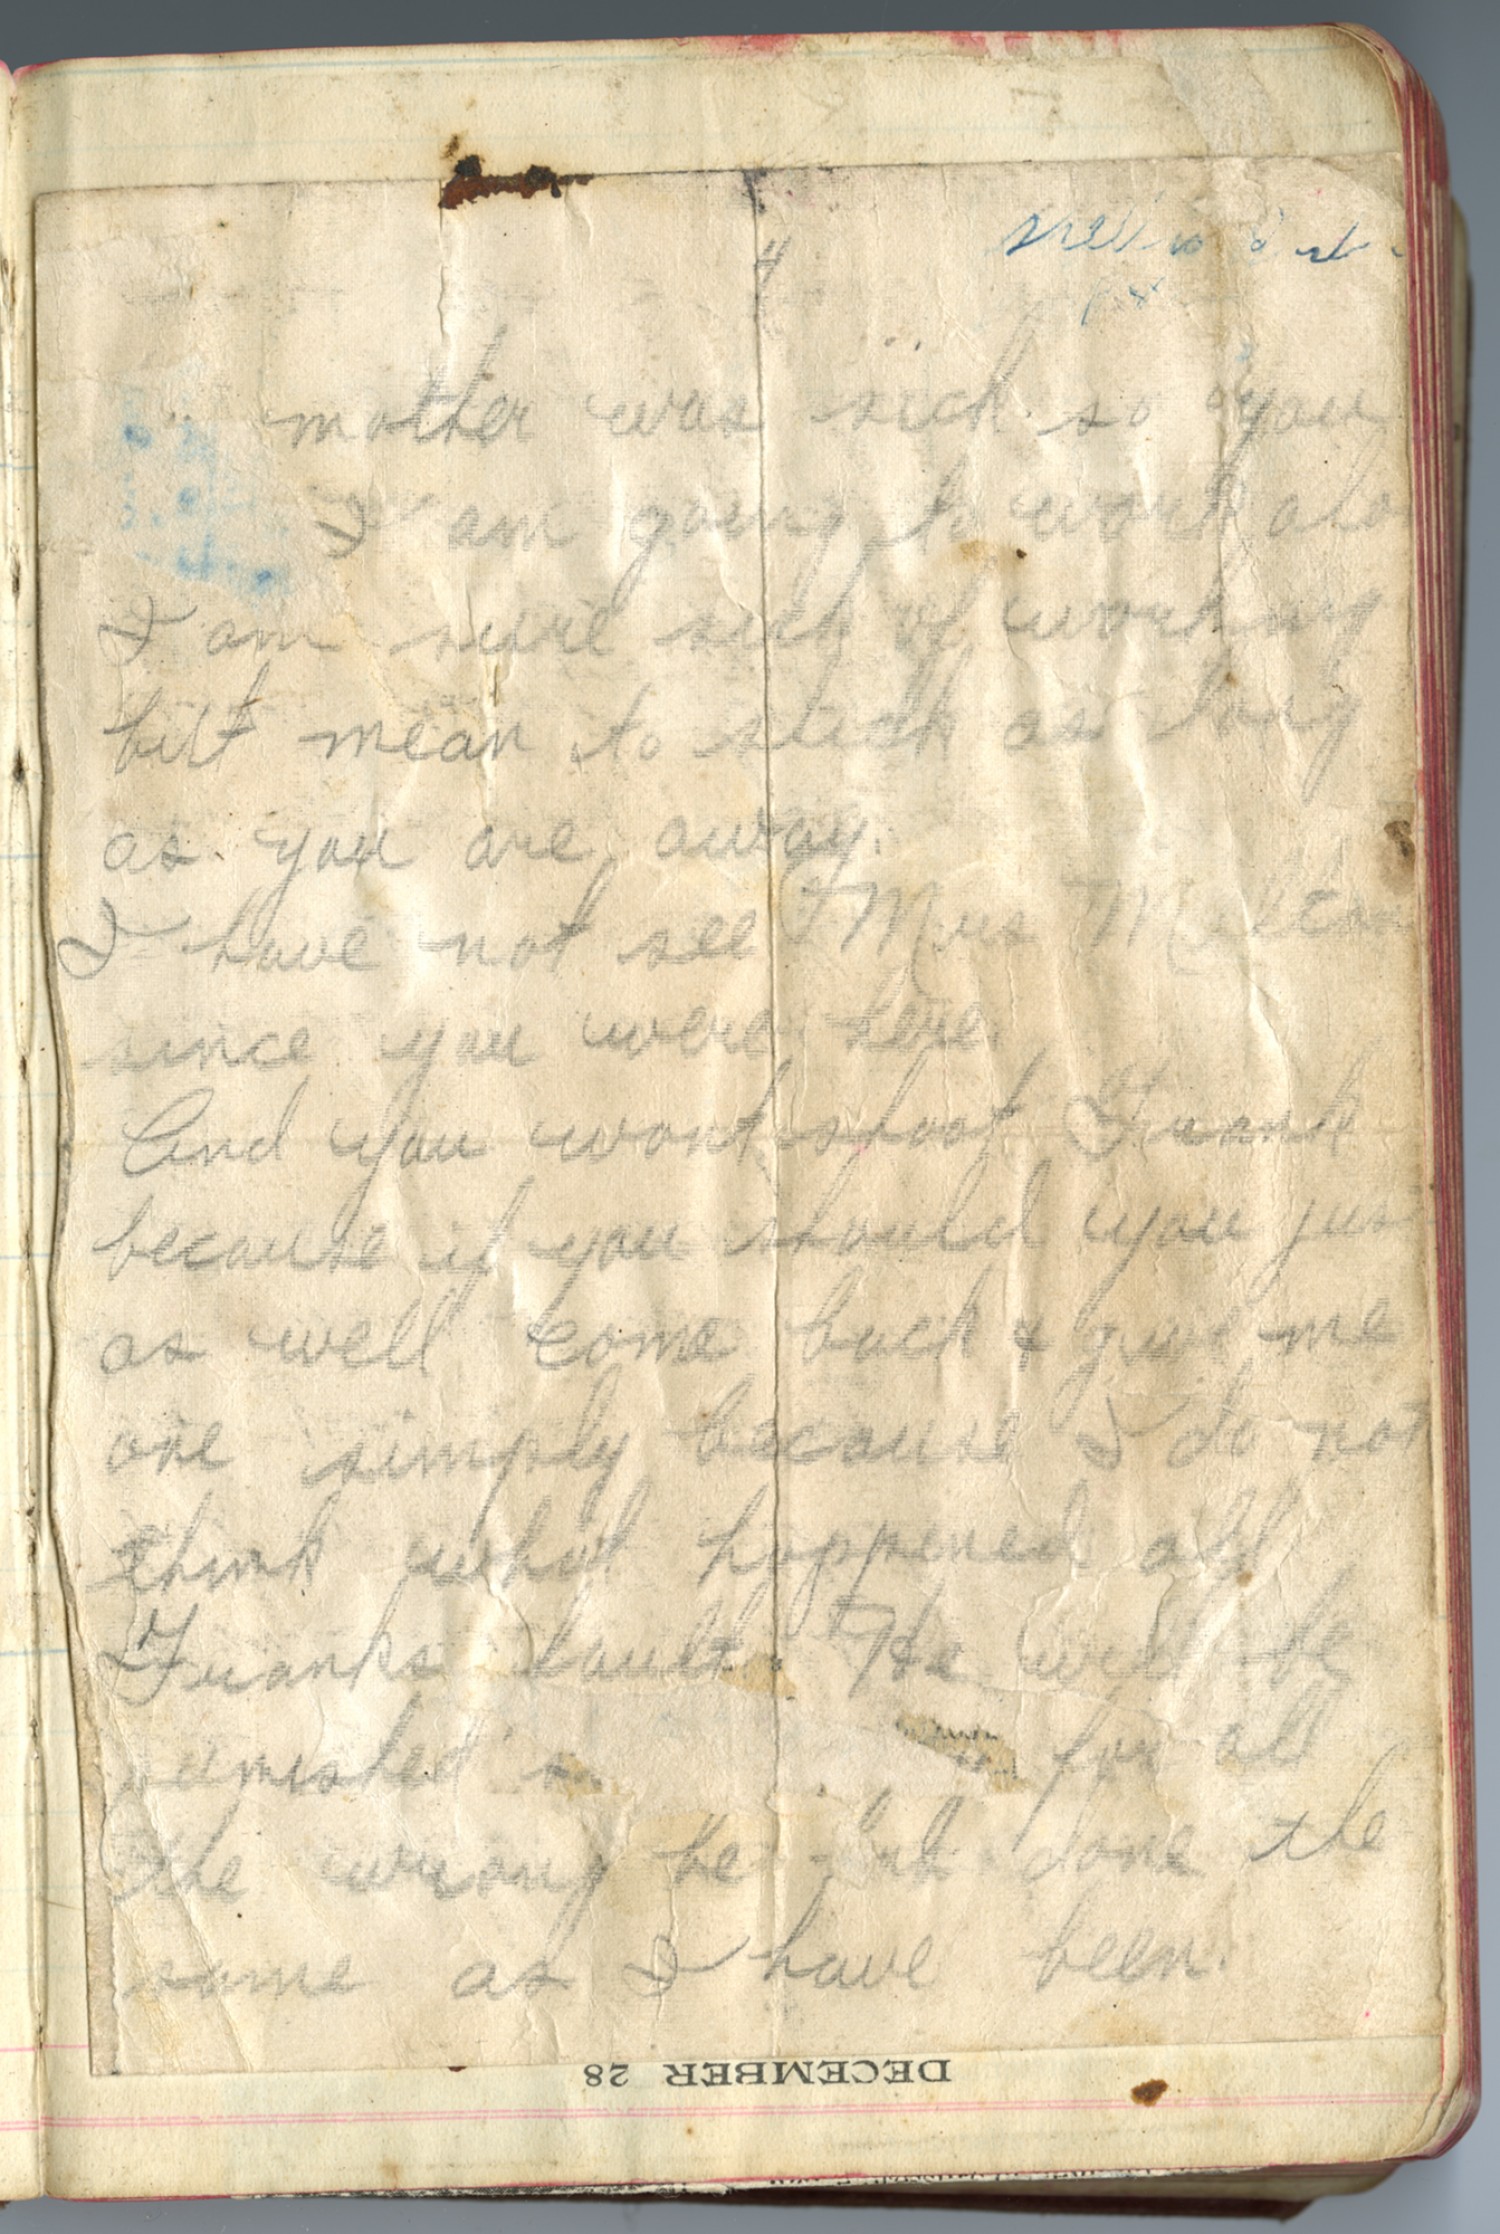 4
mother was sick so you
I am going to work
I am sure sick of working
but mean to stick as long
as you are away.
I have not see Mrs
since you were here.
And you wont shoot Frank
because if you should you jus
as well come back & give me
one simply because I do not
think what happened all
Franks fault. He will be
punished for all
the wrong he done the
same as I have been.
DECEMBER 28